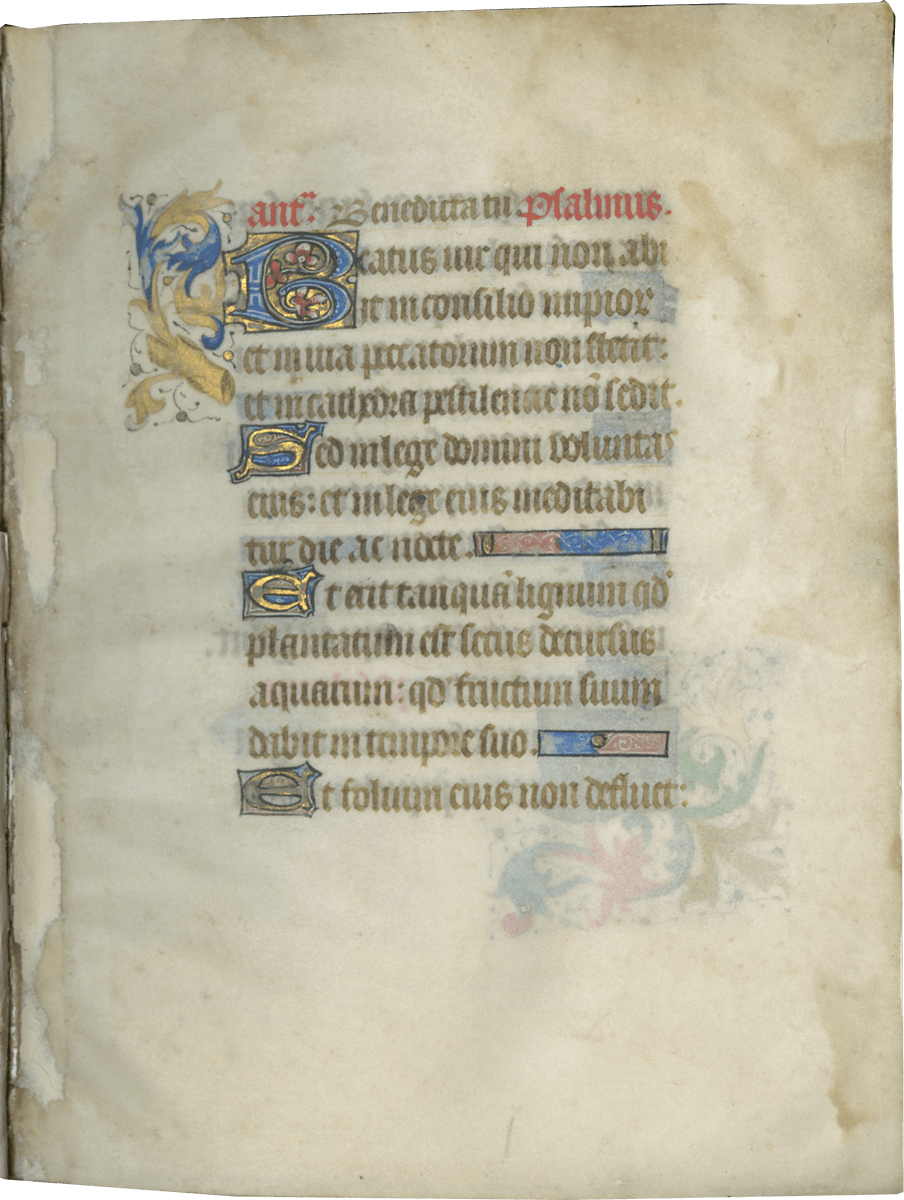 antᵃ: Benedicta tu. Psalmus.
Beatus uir qui non abi
it in consilio impior
et in uia peccatorum non stetit:
et in cathedra pestilencie nō sedit.
Sed in lege domini uolunta
eius: et in lege eius meditabi
tur die ac nocte.
Et erit tanquā lignum qd̄
plantatum est secus decursus
aquarum: qd̄ fructum suum
dabit in tempore suo.
Et folium eius non defluet: